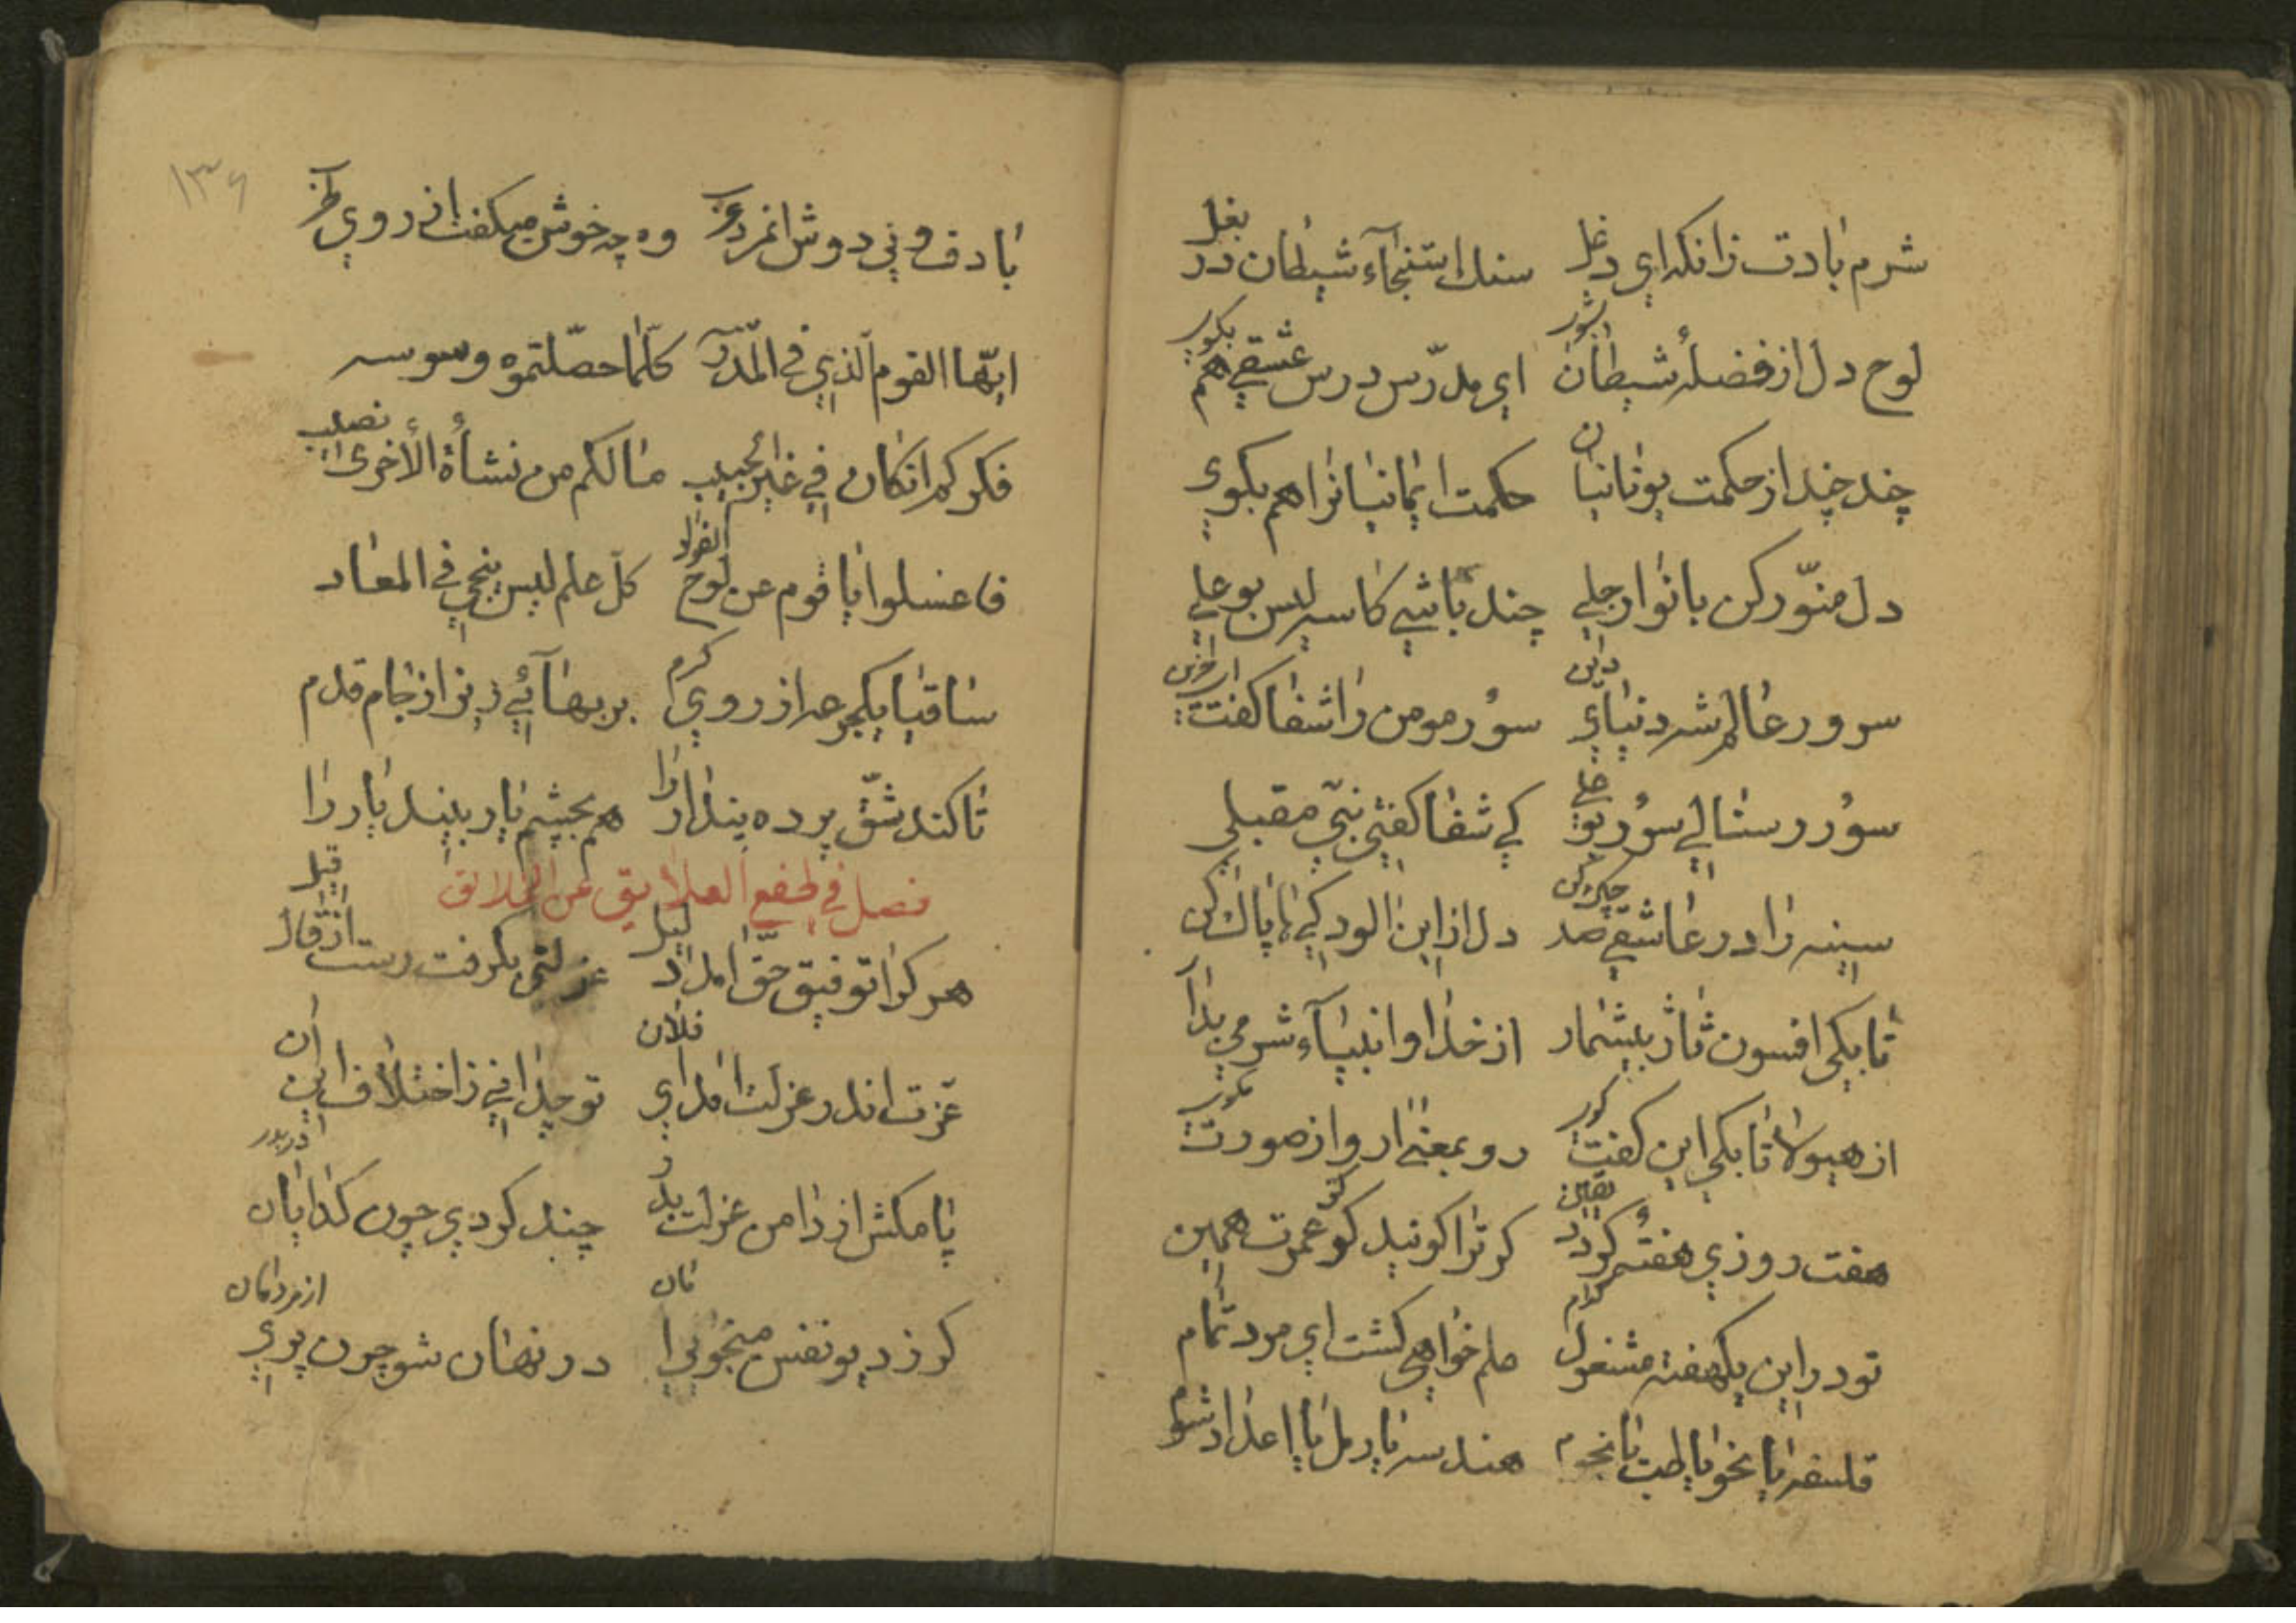 شرم بادت زانکه ای دغل سنک استنجآء شیطان در بغل
لوح دل از فضلهٔ شیطان بشور ای مدرّس درس عشقی هم بکوی
چند چند از حکمت یونانیان حکمت ایمانیانرا هم بکوی
دل منوّر کن بانوار جلی چند باشی کاسه لیس بوعلی
سرور عالم شه دنیا و دین سؤر مومن را شفا کفت
سؤر رسطالی سؤر بو علی کی شفا کفتی نبی مقبلی
سینه را در عاشقی صد چاک کن دل از این الودکی ها پاک کن
تا بکی افسون ثاژ بیشمار از خدا و انبیآء شرمی بدار
از هیولا تا بکی این کفت کوی رو بمعنی ار و از صورت مکوی
هفت روزی هفته کردد یقین کر ترا کویند کو عمرت همین
تو در این یکهفته مشغول کدام علم خواهی کشت ای مرد تمام
فلسفه یا نحو یا طب یا نجوم هندسه یا رمل یا اعداد شوم
۱۳۶
با دف و نی دوش انمرد عرب وه چه خوش میکفت از روی طرب
ایّها القوم الّذی فی المدرسه کلّما حصّلتموه وسوسه
فکرکم انکان فی غیر الحبیب مالکم من نشأة الأخری نصیب
فاغسلوا یا قوم عن لوح الفؤاد کلّ علم لیس ینجی فی المعاد
ساقیا یکجرعه از روی کرم بر بهآئی ریز از جام قدم
تا کند شقّ پرده پندار را هم بچشم یار بیند یار را
فصل فی قطع العلایق عن الخلائق
هر کرا توفیق حقّ امد دلیل عزلتی بکرفت رست از قال قیل
عزت اندر عزلت امد ای فلان تو چدانی ز اختلاف این آن
پا مکش از دامن عزلت بدر چند کردی چون کدایان در بدر
کر ز دیو نفس میجوئی امان در نهان شو چون پری از مردمان